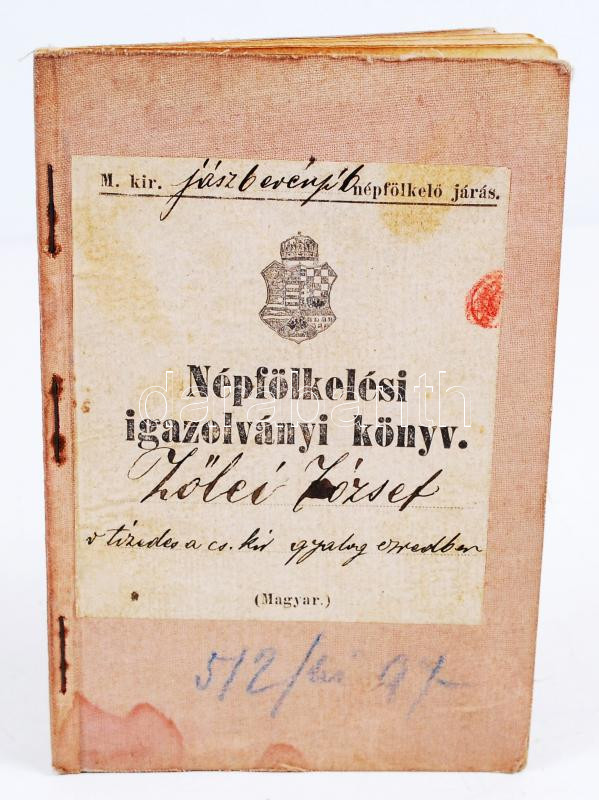 M. kir. jászberényi 6 népfölkelő járás.
Népfölkelési
igazolványi könyv.
Zőlei József
v tizedes a cs. kir gyalog ezredben
(Magyar.)
512/